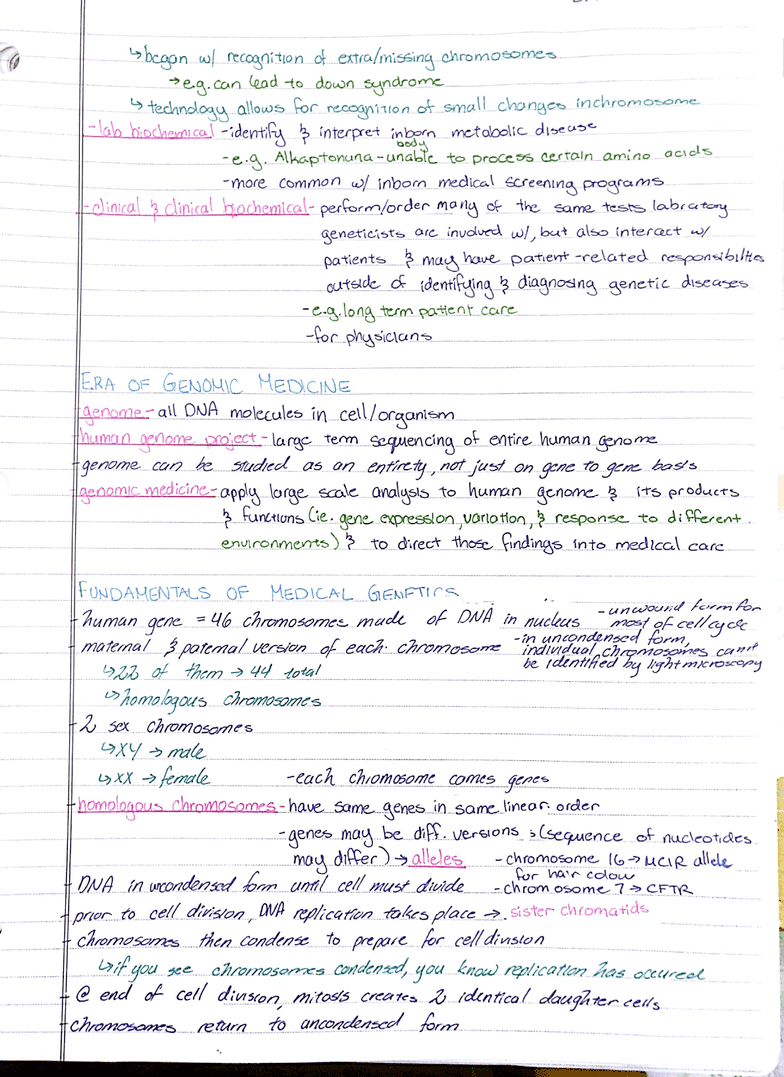 ↳began w/ recognition of extra/missing chromosomes
→e.g. can lead to down syndrome
↳ technology allows for recognition of small changes in chromosome
-lab biochemical -identify & interpret inborn metabolic disease
body
-e.g. Alkaptonuria -unable to process certain amino acids
-more common w/ inborn medical screening programs
-clinical & clinical biochemical- perform/order many of the same tests labratory
geneticists are involved w/, but also interact w/
patients & may have patient-related responsibilties
outside of identifying & diagnosing genetic diseases
-e.g. long term patient care
-for physicians
ERA OF GENOMIC MEDICINE
genome-all DNA molecules in cell/organism
human genome project-large term sequencing of entire human genome
-genome can be studied as an entirety, not just on gene to gene basis
genomic medicine-apply large scale analysis to human genome & its products
& functions (ie. gene expression, variation, & response to different
environments) & to direct those findings into medical care
FUNDAMENTALS OF MEDICAL GENETICS
-human gene = 46 chromosomes made of DNA in nucleus -unwound form for
most of cell cycle
maternal & paternal version of each chromosome -in uncondensed form,
individual chromosomes can't
be identified by light microscopy
↳22 of them → 44 total
↳homologous chromosomes
-2 sex chromosomes
↳XY → male
↳XX → female -each chromosome comes genes
-homologous chromosomes-have same genes in same linear order
-genes may be diff. versions :(sequence of nucleotides
may differ) → alleles -chromosome 16 → MC1R allele
for hair colour
-DNA in uncondensed form until cell must divide -chromosome 7 → CFTR
-prior to cell division, DNA replication takes place → sister chromatids
-chromosomes then condense to prepare for cell division
↳if you see chromosomes condensed, you know replication has occured
-@ end of cell division, mitosis creates 2 identical daughter cells
-chromosomes return to uncondensed form